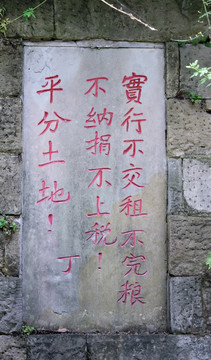 實行不交租不完粮
不纳捐不上税！
平分土地！
丁